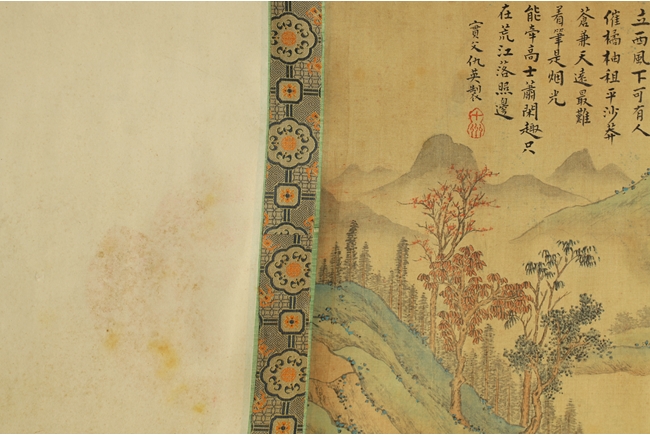 立西風下可有人
催橘柚租平沙莽
蒼兼天遠最難
着筆是烟光
能牽高士蕭閑趣只
在荒江落照邊
實父仇英製
十洲